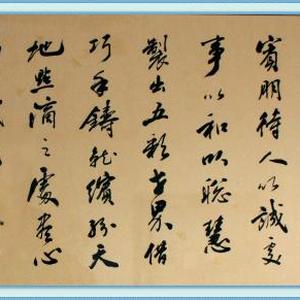 賓朋待人以誠處
事以和以聪慧
製出五彩世界借
巧手鑄就缤纷天
地點滴之處盡心